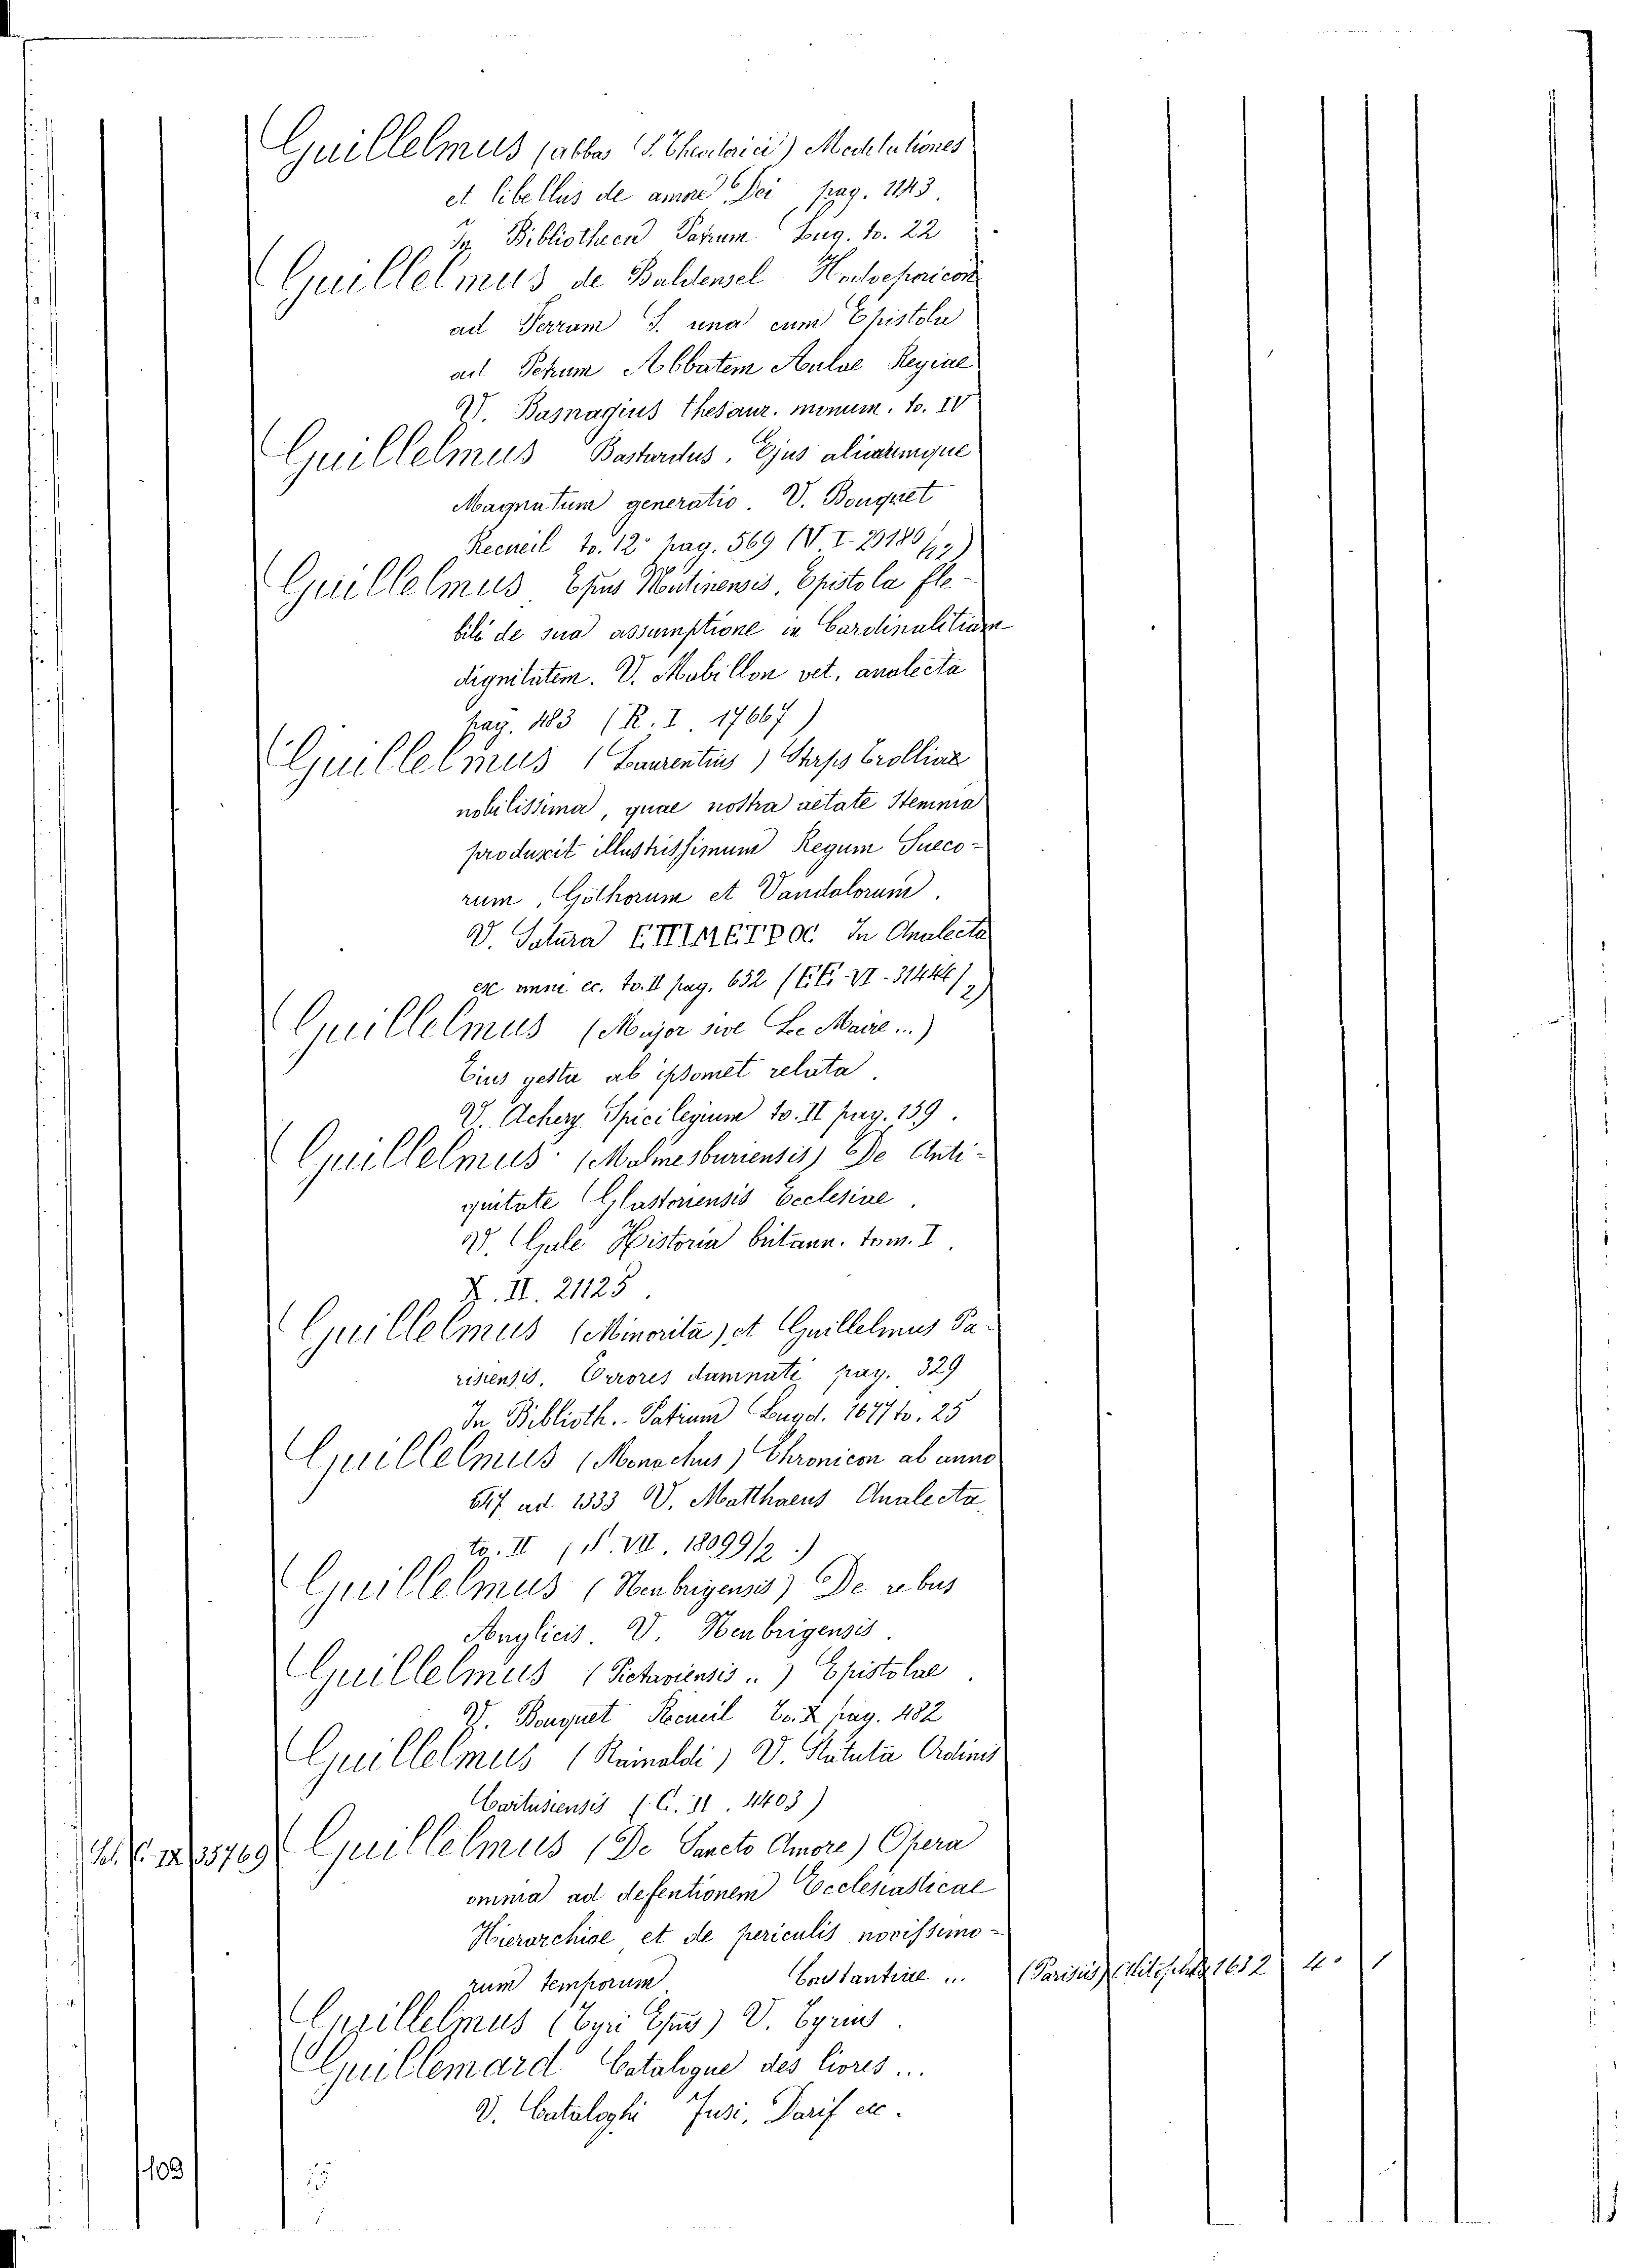 Guillelmus (abbas S. Theodorici) Meditationes
et libellus de amore Dei pag. 1143.
In Bibliotheca Patrum Lug. to. 22
Guillelmus de Baldensel Hodoeporicon
ad Terram S. una cum Epistola
ad Petrum Abbatem Aulae Regiae
V. Basnagius thesaur. monum. to. IV
Guillelmus Bastardus. Ejus aliorumque
Magnatum generatio. V. Bouquet
Recueil to. 12° pag. 569 (V. I. 29180/12)
Guillelmus Epus Mutinensis, Epistola fle-
bili de sua assumptione in Cardinalitiam
dignitatem. V. Mabillon vet. analecta
pag. 483 (R. I. 17667)
Guillelmus (Laurentius) Stirps Trolliae
nobilissima, quae nostra aetate Stemma
produxit illustrissimum Regum Sueco-
rum, Gothorum et Vandalorum.
V. Satura In Analecta
ex omni ec. to. II pag. 652 (EE. VI. 31444/2)
Guillelmus (Major sive Le Maire...)
Eius gesta ab ipsomet relata.
V. Achery Spicilegium to. II pag. 159.
Guillelmus (Malmesburiensis) De Anti-
quitate Glastoniensis Ecclesiae.
V. Gale Historia britann. tom. I.
X. II. 21125.
Guillelmus (Minorita) et Guillelmus Pa-
risiensis. Errores damnati pag. 329
In Biblioth. Patrum Lugd. 1677 to. 25
Guillelmus (Monachus) Chronicon ab anno
647 ad 1333 V. Matthaeus Analecta
to. II (S. VII. 18099/2.)
Guillelmus (Neubrigensis) De rebus
Anglicis. V. Neubrigensis.
Guillelmus (Pictaviensis..) Epistolae.
V. Bouquet Recueil to. X pag. 482
Guillelmus (Rainaldi) V. Statuta Ordinis
Cartusiensis (C. II. 4403)
Sel. C. IX 35769 Guillelmus (De Sancto Amore) Opera
omnia ad defentionem Ecclesiasticae
Hierarchiae et de periculis novissimo-
rum temporum Constantiae ... (Parisiis) Alitophilos 1632 4° 1
Guillelmus (Tyri Epus) V. Tyrius.
Guillemard Catalogue des livres...
V. Cataloghi Fusi, Darif ec.
103